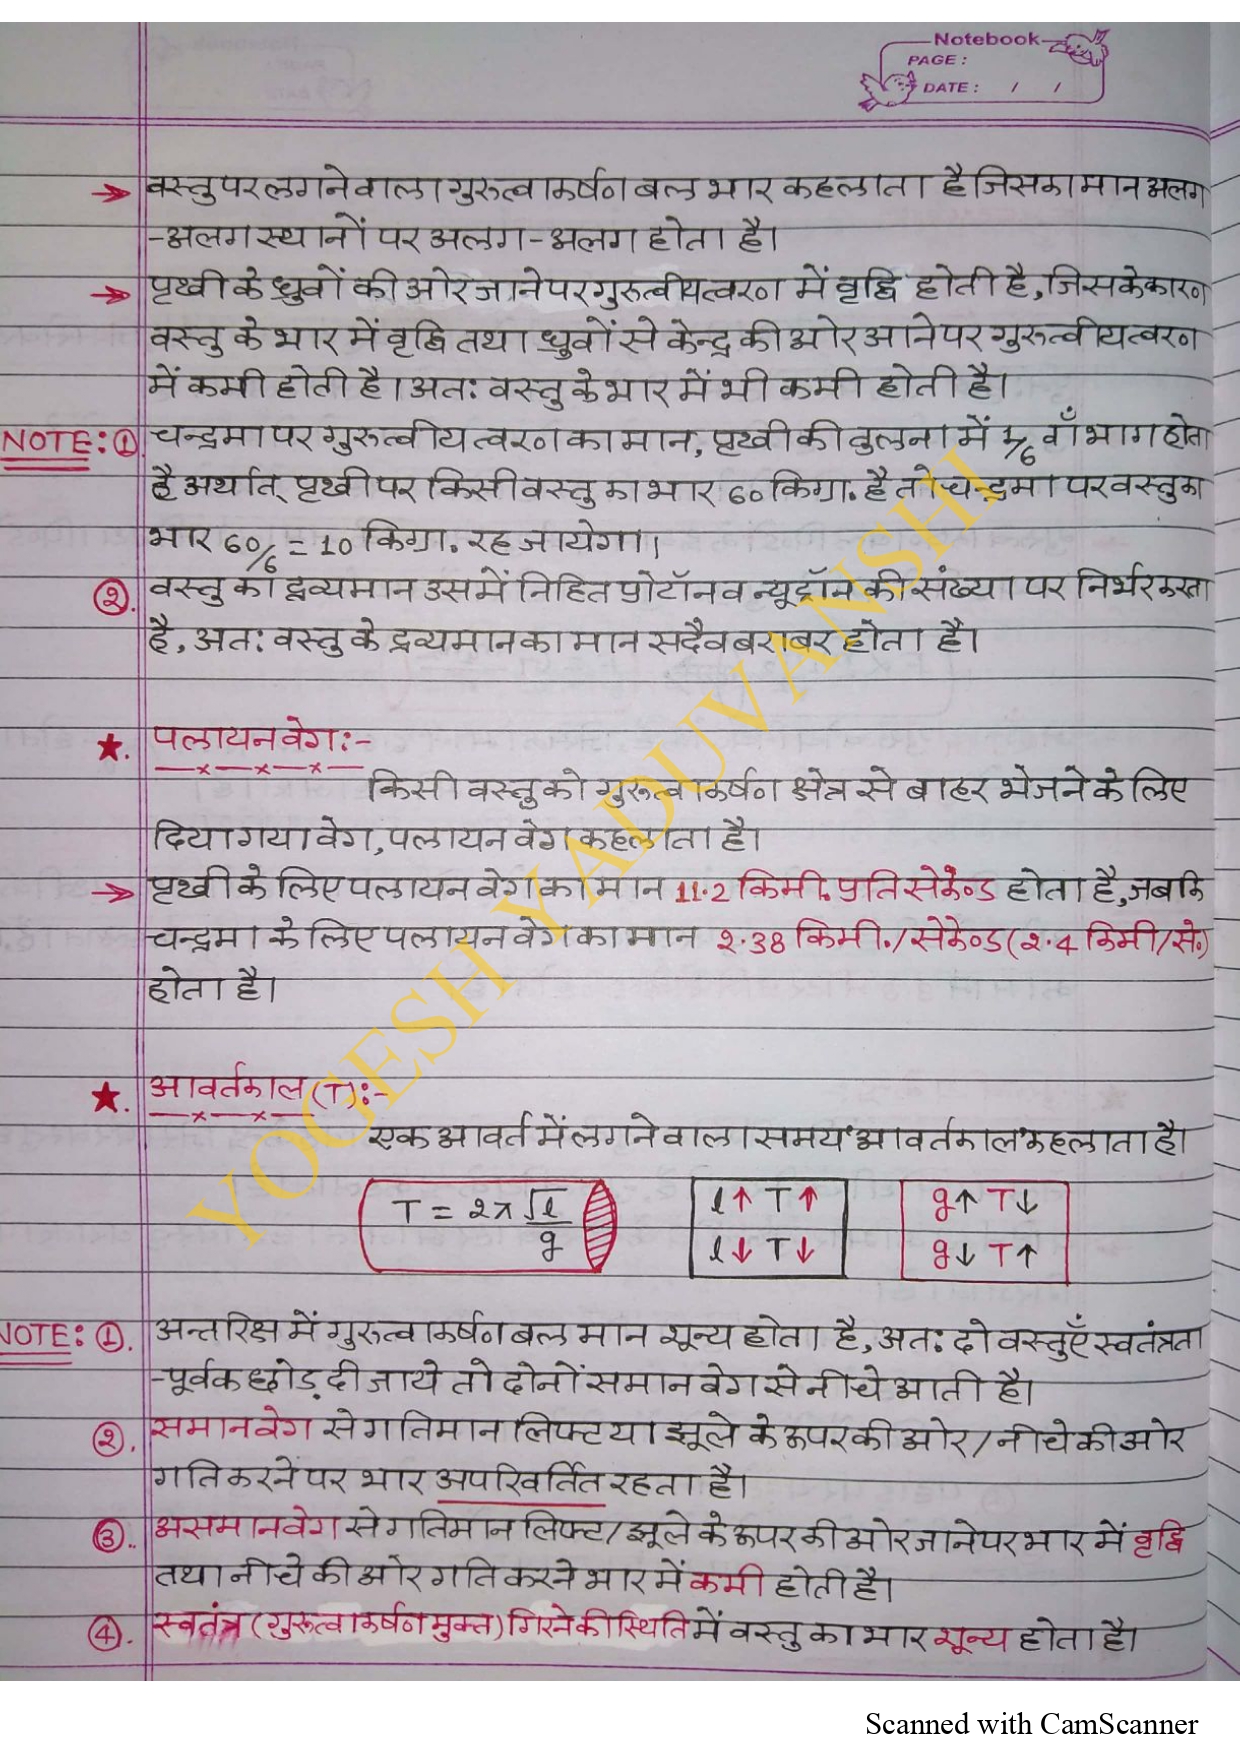 Notebook
PAGE :
DATE : / /
→ वस्तु पर लगने वाला गुरुत्वाकर्षण बल भार कहलाता है जिसका मान अलग
-अलग स्थानों पर अलग-अलग होता है।
→ पृथ्वी के ध्रुवों की ओर जाने पर गुरुत्वीयत्वरण में वृद्धि होती है, जिसके कारण
वस्तु के भार में वृद्धि तथा ध्रुवों से केन्द्र की ओर आने पर गुरुत्वीयत्वरण
में कमी होती है। अतः वस्तु के भार में भी कमी होती है।
NOTE: ① चन्द्रमा पर गुरुत्वीय त्वरण का मान, पृथ्वी की तुलना में 1/6 वाँ भाग होता
है अर्थात् पृथ्वी पर किसी वस्तु का भार 60 किग्रा. है तो चन्द्रमा पर वस्तु का
भार 60/6 = 10 किग्रा. रह जायेगा।
②. वस्तु का द्रव्यमान उसमें निहित प्रोटॉन व न्यूट्रॉन की संख्या पर निर्भर करता
है, अतः वस्तु के द्रव्यमान का मान सदैव बराबर होता है।
★. पलायन वेग:-
किसी वस्तु को गुरुत्वाकर्षण क्षेत्र से बाहर भेजने के लिए
दिया गया वेग, पलायन वेग कहलाता है।
→ पृथ्वी के लिए पलायन वेग का मान 11.2 किमी. प्रति सेकेण्ड होता है, जबकि
चन्द्रमा के लिए पलायन वेग का मान २.38 किमी./सेकेण्ड (२.4 किमी/से.)
होता है।
★. आवर्तकाल (T):-
एक आवर्त में लगने वाला समय 'आवर्तकाल' कहलाता है।
T = २π √l/g
l↑ T↑
l↓ T↓
g↑ T↓
g↓ T↑
NOTE: ①. अन्तरिक्ष में गुरुत्वाकर्षण बल मान शून्य होता है, अतः दो वस्तुएँ स्वतंत्रता
-पूर्वक छोड़ दी जाये तो दोनों समान वेग से नीचे आती है।
②. समान वेग से गतिमान लिफ्ट या झूले के ऊपर की ओर/नीचे की ओर
गति करने पर भार अपरिवर्तित रहता है।
③. असमान वेग से गतिमान लिफ्ट/झूले के ऊपर की ओर जाने पर भार में वृद्धि
तथा नीचे की ओर गति करने भार में कमी होती है।
④. स्वतंत्र (गुरुत्वाकर्षण मुक्त) गिरने की स्थिति में वस्तु का भार शून्य होता है।
YOGESH YADUVANSHI
Scanned with CamScanner